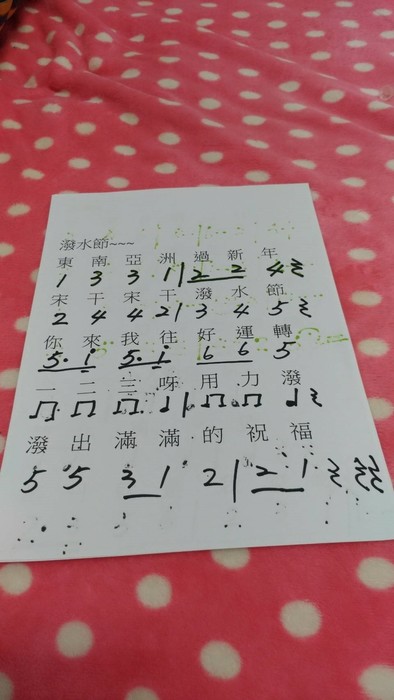 潑水節~~~
東南亞洲過新年
1 3 3 1 | 2 2 4
宋干宋干潑水節
2 4 4 2 | 3 4 5
你來我往好運轉
5. i 5. i 6 6 5
一二三呀用力潑
潑出滿滿的祝福
5 5 3 1 2 | 2 1